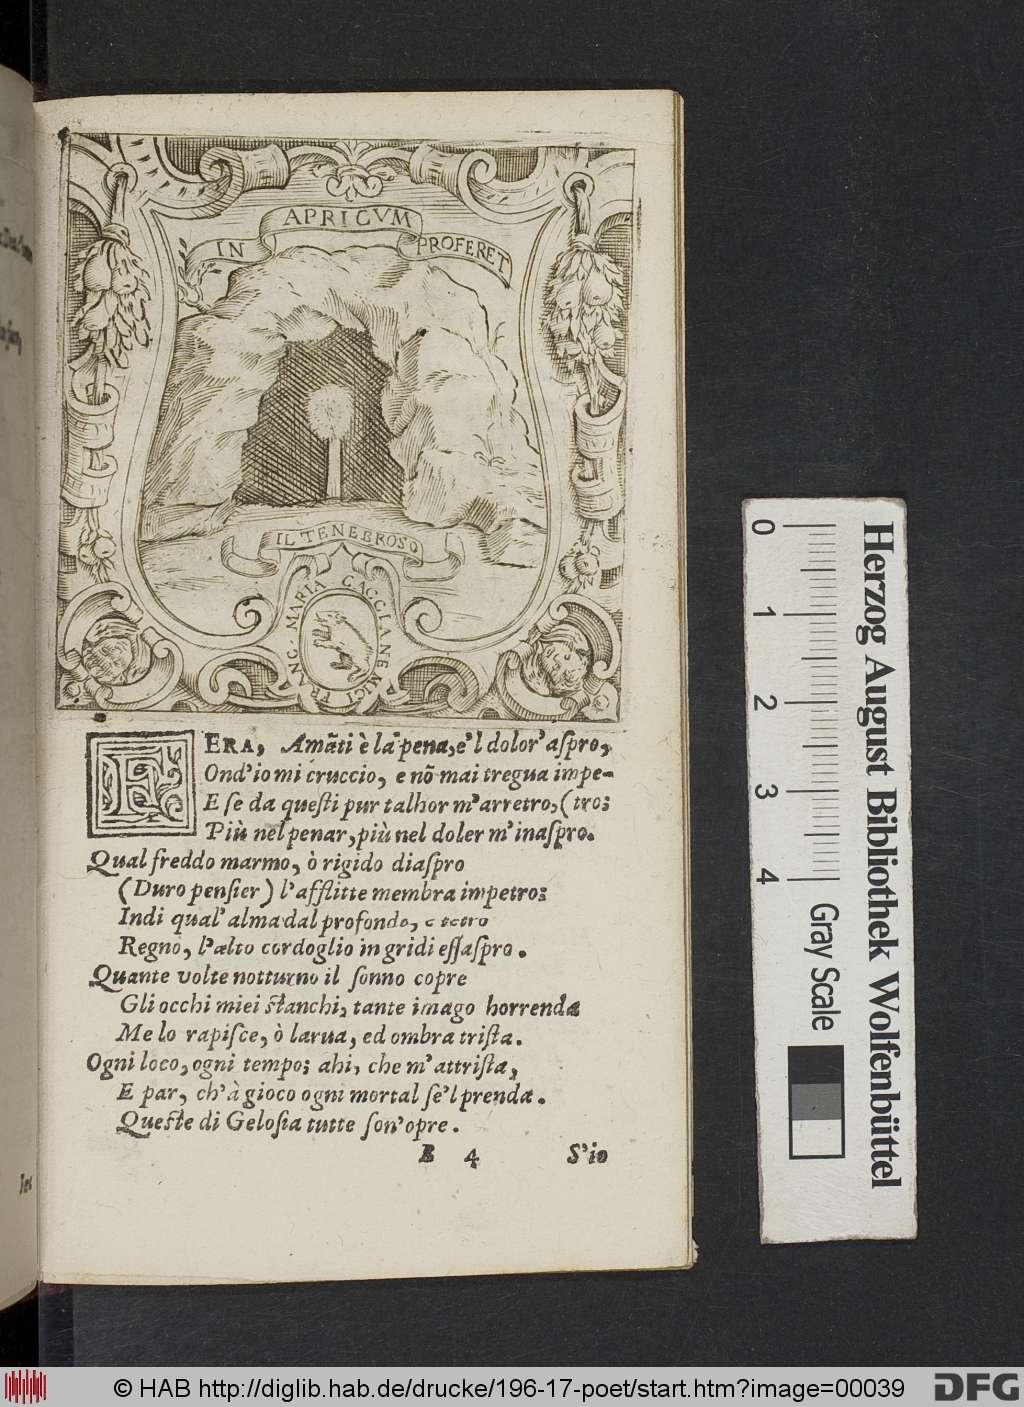 IN APRICVM PROFERET
IL TENEBROSO
FRANC. MARIA CACCIANEMICI
FERA, Amãti è la pena, e'l dolor' aſpro,
Ond'io mi cruccio, e nõ mai tregua impe-
E ſe da queſti pur talhor m'arretro, (tro;
Più nel penar, più nel doler m'inaſpro.
Qual freddo marmo, ò rigido diaſpro
(Duro penſier) l'afflitte membra impetro:
Indi qual' alma dal profondo, e tetro
Regno, l'alto cordoglio in gridi eſſaſpro.
Quante volte notturno il ſonno copre
Gli occhi miei ſtanchi, tante imago horrenda
Me lo rapiſce, ò larua, ed ombra triſta.
Ogni loco, ogni tempo; ahi, che m'attriſta,
E par, ch'à gioco ogni mortal ſe'l prenda.
Queſte di Geloſia tutte ſon' opre.
B 4 S'io
0 1 2 3 4
Gray Scale
Herzog August Bibliothek Wolfenbüttel
© HAB http://diglib.hab.de/drucke/196-17-poet/start.htm?image=00039
DFG